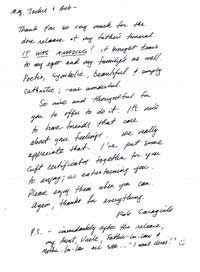 Thank you so very much for the
dove release at my father's funeral
IT WAS AMAZING! it brought tears
to my eyes and my family's as well.
Poetic, symbolic, beautiful & simply
cathartic; - was wonderful.
So nice and thoughtful for
you to offer to do it. It's nice
to have friends that care
about your feelings. We really
appreciate that. I've put some
gift certificates together for you
to enjoy; us entertaining you.
Please enjoy them when you can
Again, thanks for everything.
Rob
P.S. - immediately after the release,
my Aunt, Uncle, Father-In-Law &
Mother-In-Law all said... "I want doves!"